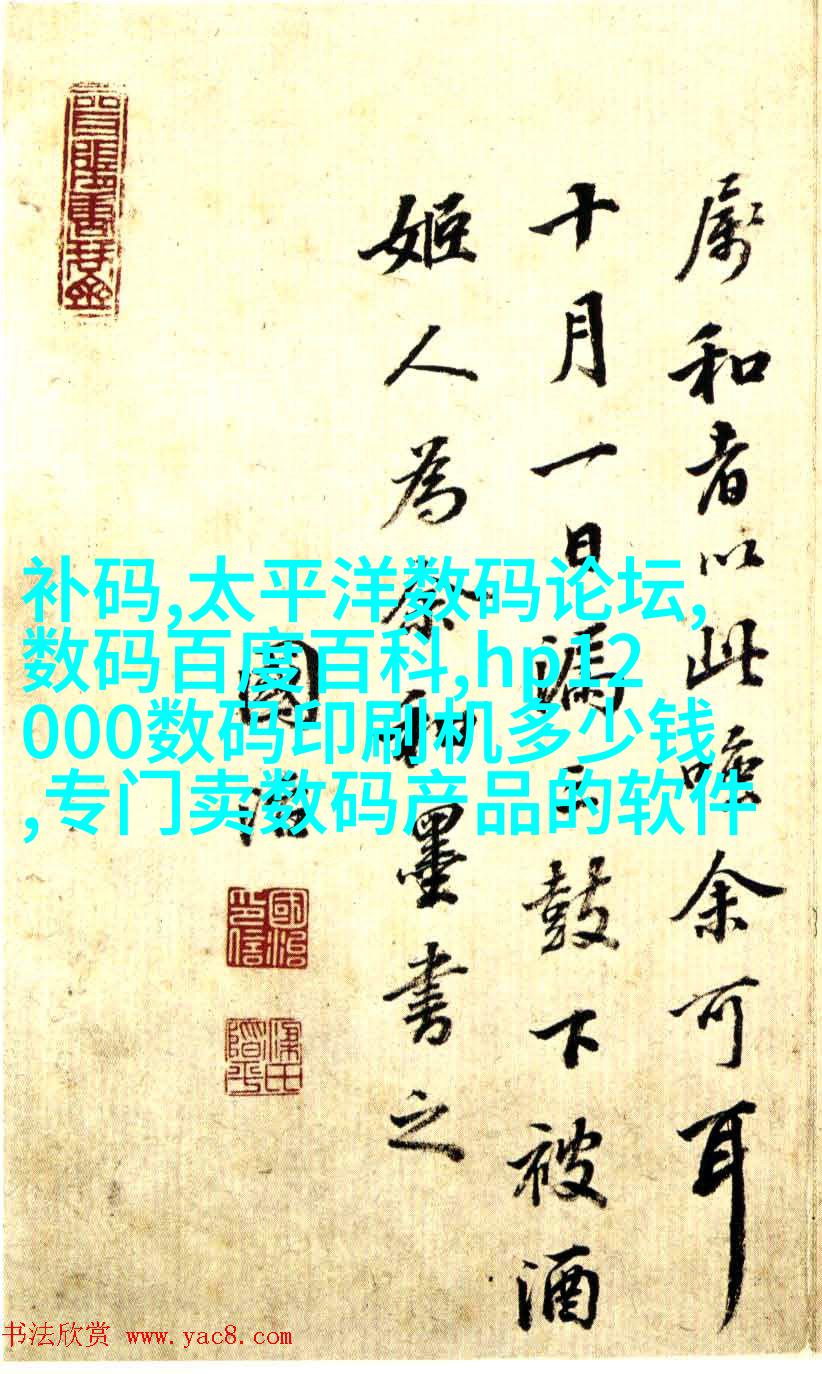 属和者以此唾余可耳
十月一日漏三鼓下被酒
姬人為余和墨書之
國治
補码,太平洋数码论坛,
数码百度百科,hp12
000数码印刷机多少钱
,专门卖数码产品的软件
國治印信
书法欣赏 www.yac8.com